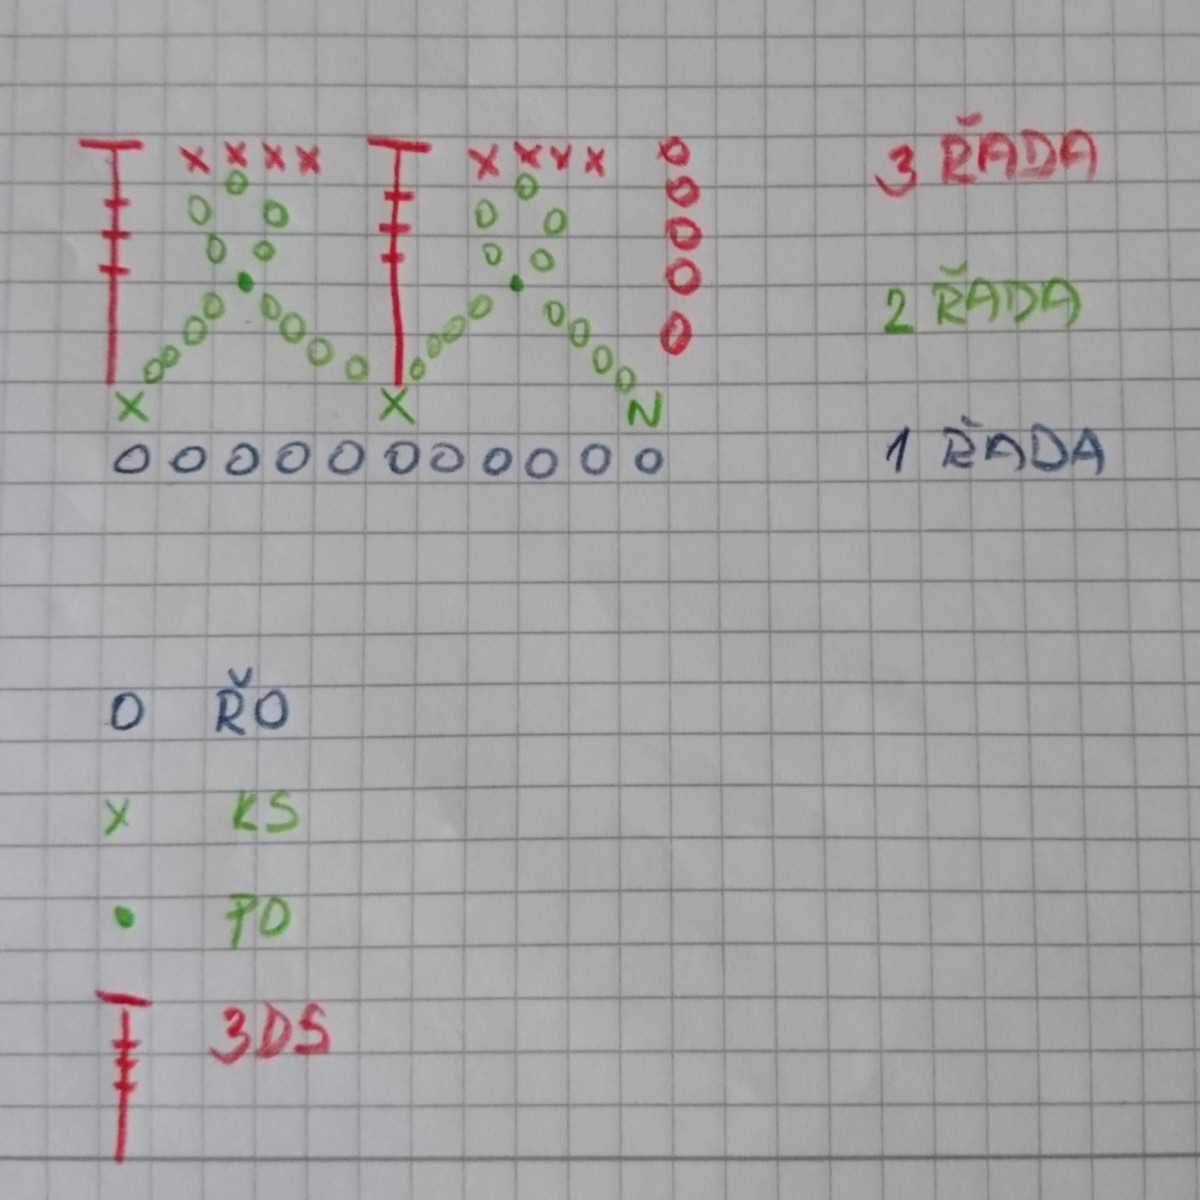 3 ŘADA
2 ŘADA
N
1 ŘADA
O ŘO
X KS
• PO
3DS